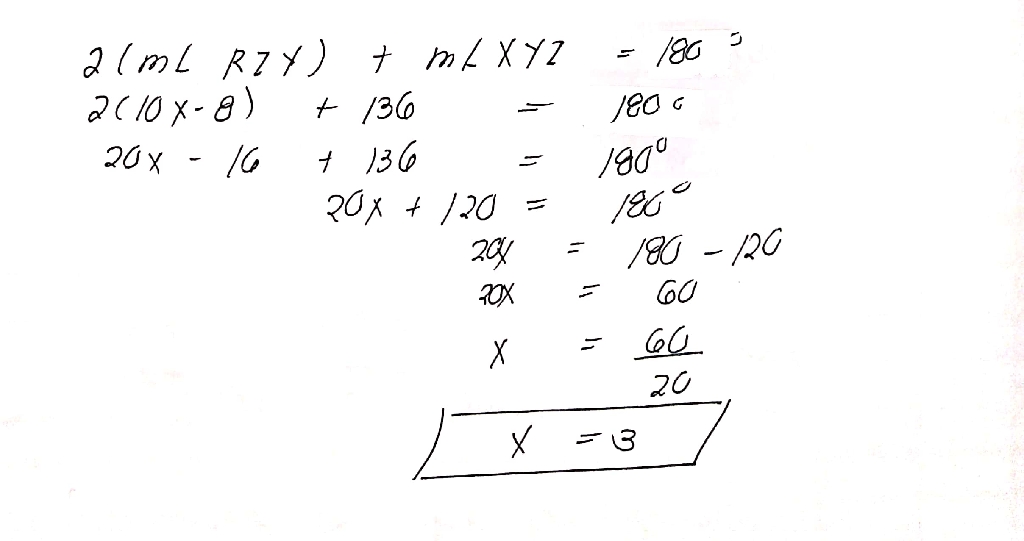 2(m∠ RZY) + m∠XYZ = 180°
2(10x-8) + 136 = 180°
20x - 16 + 136 = 180°
20x + 120 = 180°
20x = 180 - 120
20x = 60
x = 60/20
x = 3